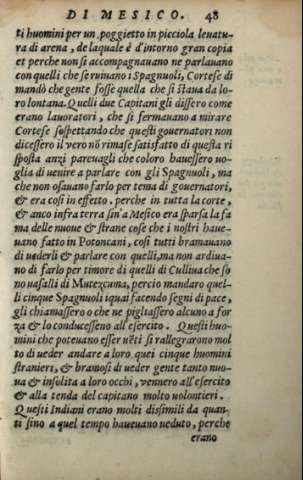 DI MESICO. 48
ti huomini per un poggietto in picciola leuatu-
ra di arena, de laquale è d'intorno gran copia
et perche non si accompagnauano ne parlauano
con quelli che seruiuano i Spagnuoli, Cortese di
mandò che gente fosse quella che si staua da lo-
ro lontana. Quelli due Capitani gli dissero come
erano lauoratori, che si fermauano a mirare
Cortese sospettando che questi gouernatori non
dicessero il vero nõ rimase satisfatto di questa ri
sposta anzi pareuagli che coloro hauessero uo-
glia di uenire a parlare con gli Spagnuoli, ma
che non osauano farlo per tema di gouernatori,
& era cosi in effetto. perche in tutta la corte,
& anco infra terra sin'a Mesico era sparsa la fa
ma delle nuoue & strane cose che i nostri haue-
uano fatto in Potoncani, cosi tutti bramauano
di uederli & parlare con quelli, ma non ardiua-
no di farlo per timore di quelli di Culliua che so
no uasalli di Mutezcuma, percio mandaro quel-
li cinque Spagnuoli iquai facendo segni di pace,
gli chiamassero o che ne pigliassero alcuno a for
za & lo conducesseno all'esercito. Questi huo-
mini che poteuano esser uẽti si rallegrarono mol
to di ueder andare a loro quei cinque huomini
stranieri, & bramosi di ueder gente tanto nuo-
ua & insolita a loro occhi, vennero all'esercito
& alla tenda del capitano molto uolontieri.
Questi Indiani erano molti dissimili da quan-
ti sino a quel tempo haueuano ueduto, perche
erano